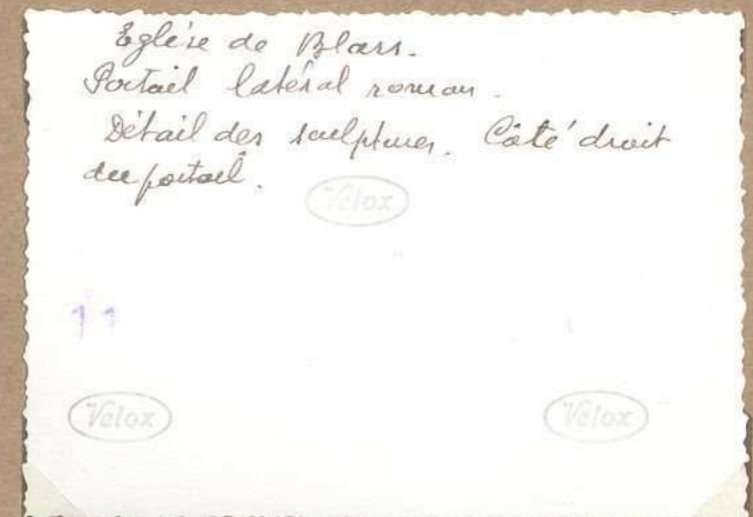 Eglise de Blars.
Portail latéral roman.
Détail des sculptures. Côté droit
du portail.
Velox
11
Velox
Velox